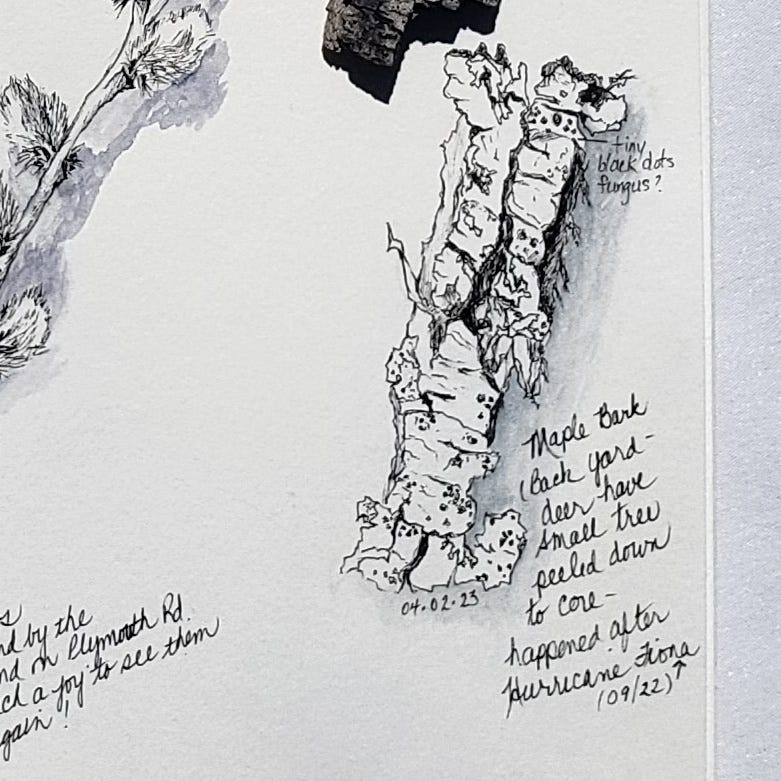 tiny
black dots
fungus?
Maple Bark
(Back yard-
deer have
small tree
peeled down
to core-
happened after
Hurricane Fiona
(09/22)↑
04.02.23
s
nd by the
nd on Plymouth Rd.
ch a joy to see them
gain!